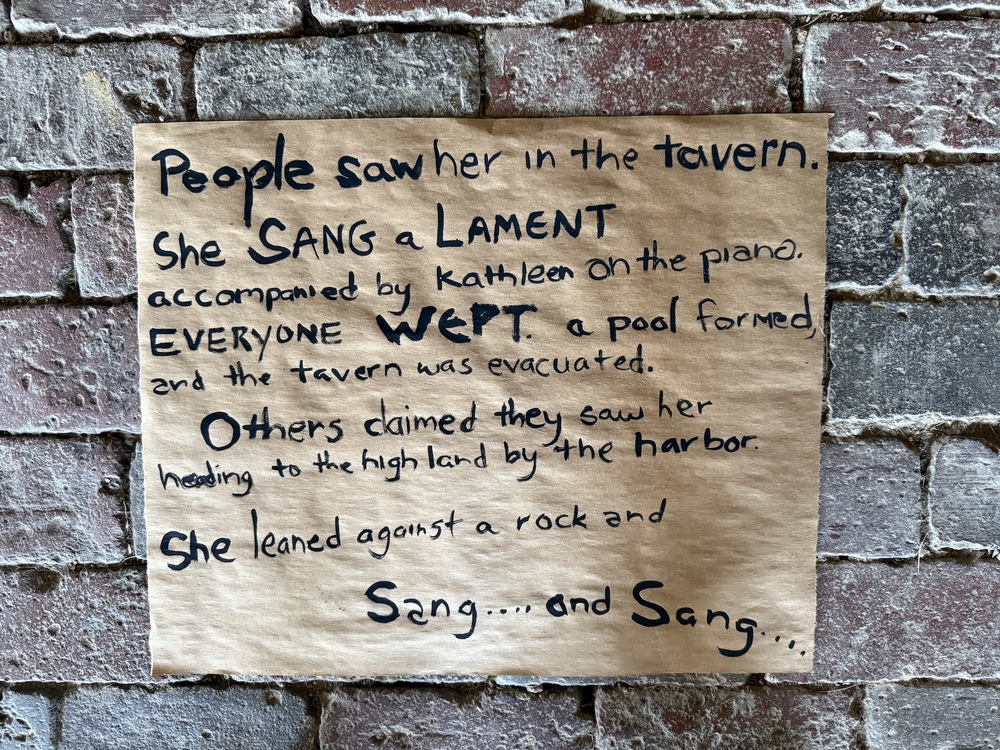 People saw her in the tavern.
She SANG a LAMENT
accompanied by Kathleen on the piano.
EVERYONE WEPT. a pool formed,
and the tavern was evacuated.
Others claimed they saw her
heading to the high land by the harbor.
She leaned against a rock and
Sang.... and Sang....